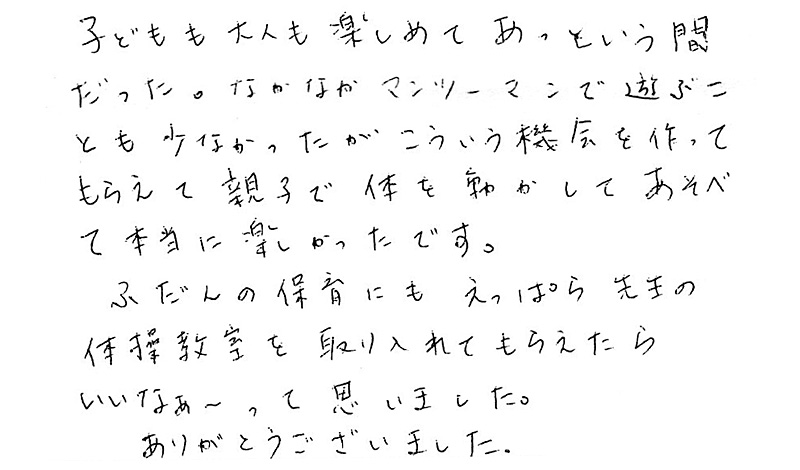 子どもも大人も楽しめてあっという間
だった。なかなかマンツーマンで遊ぶこ
とも少なかったがこういう機会を作って
もらえて親子で体を動かしてあそべ
て本当に楽しかったです。
ふだんの保育にもえっぱら先生の
体操教室を取り入れてもらえたら
いいなぁ～って思いました。
ありがとうございました。